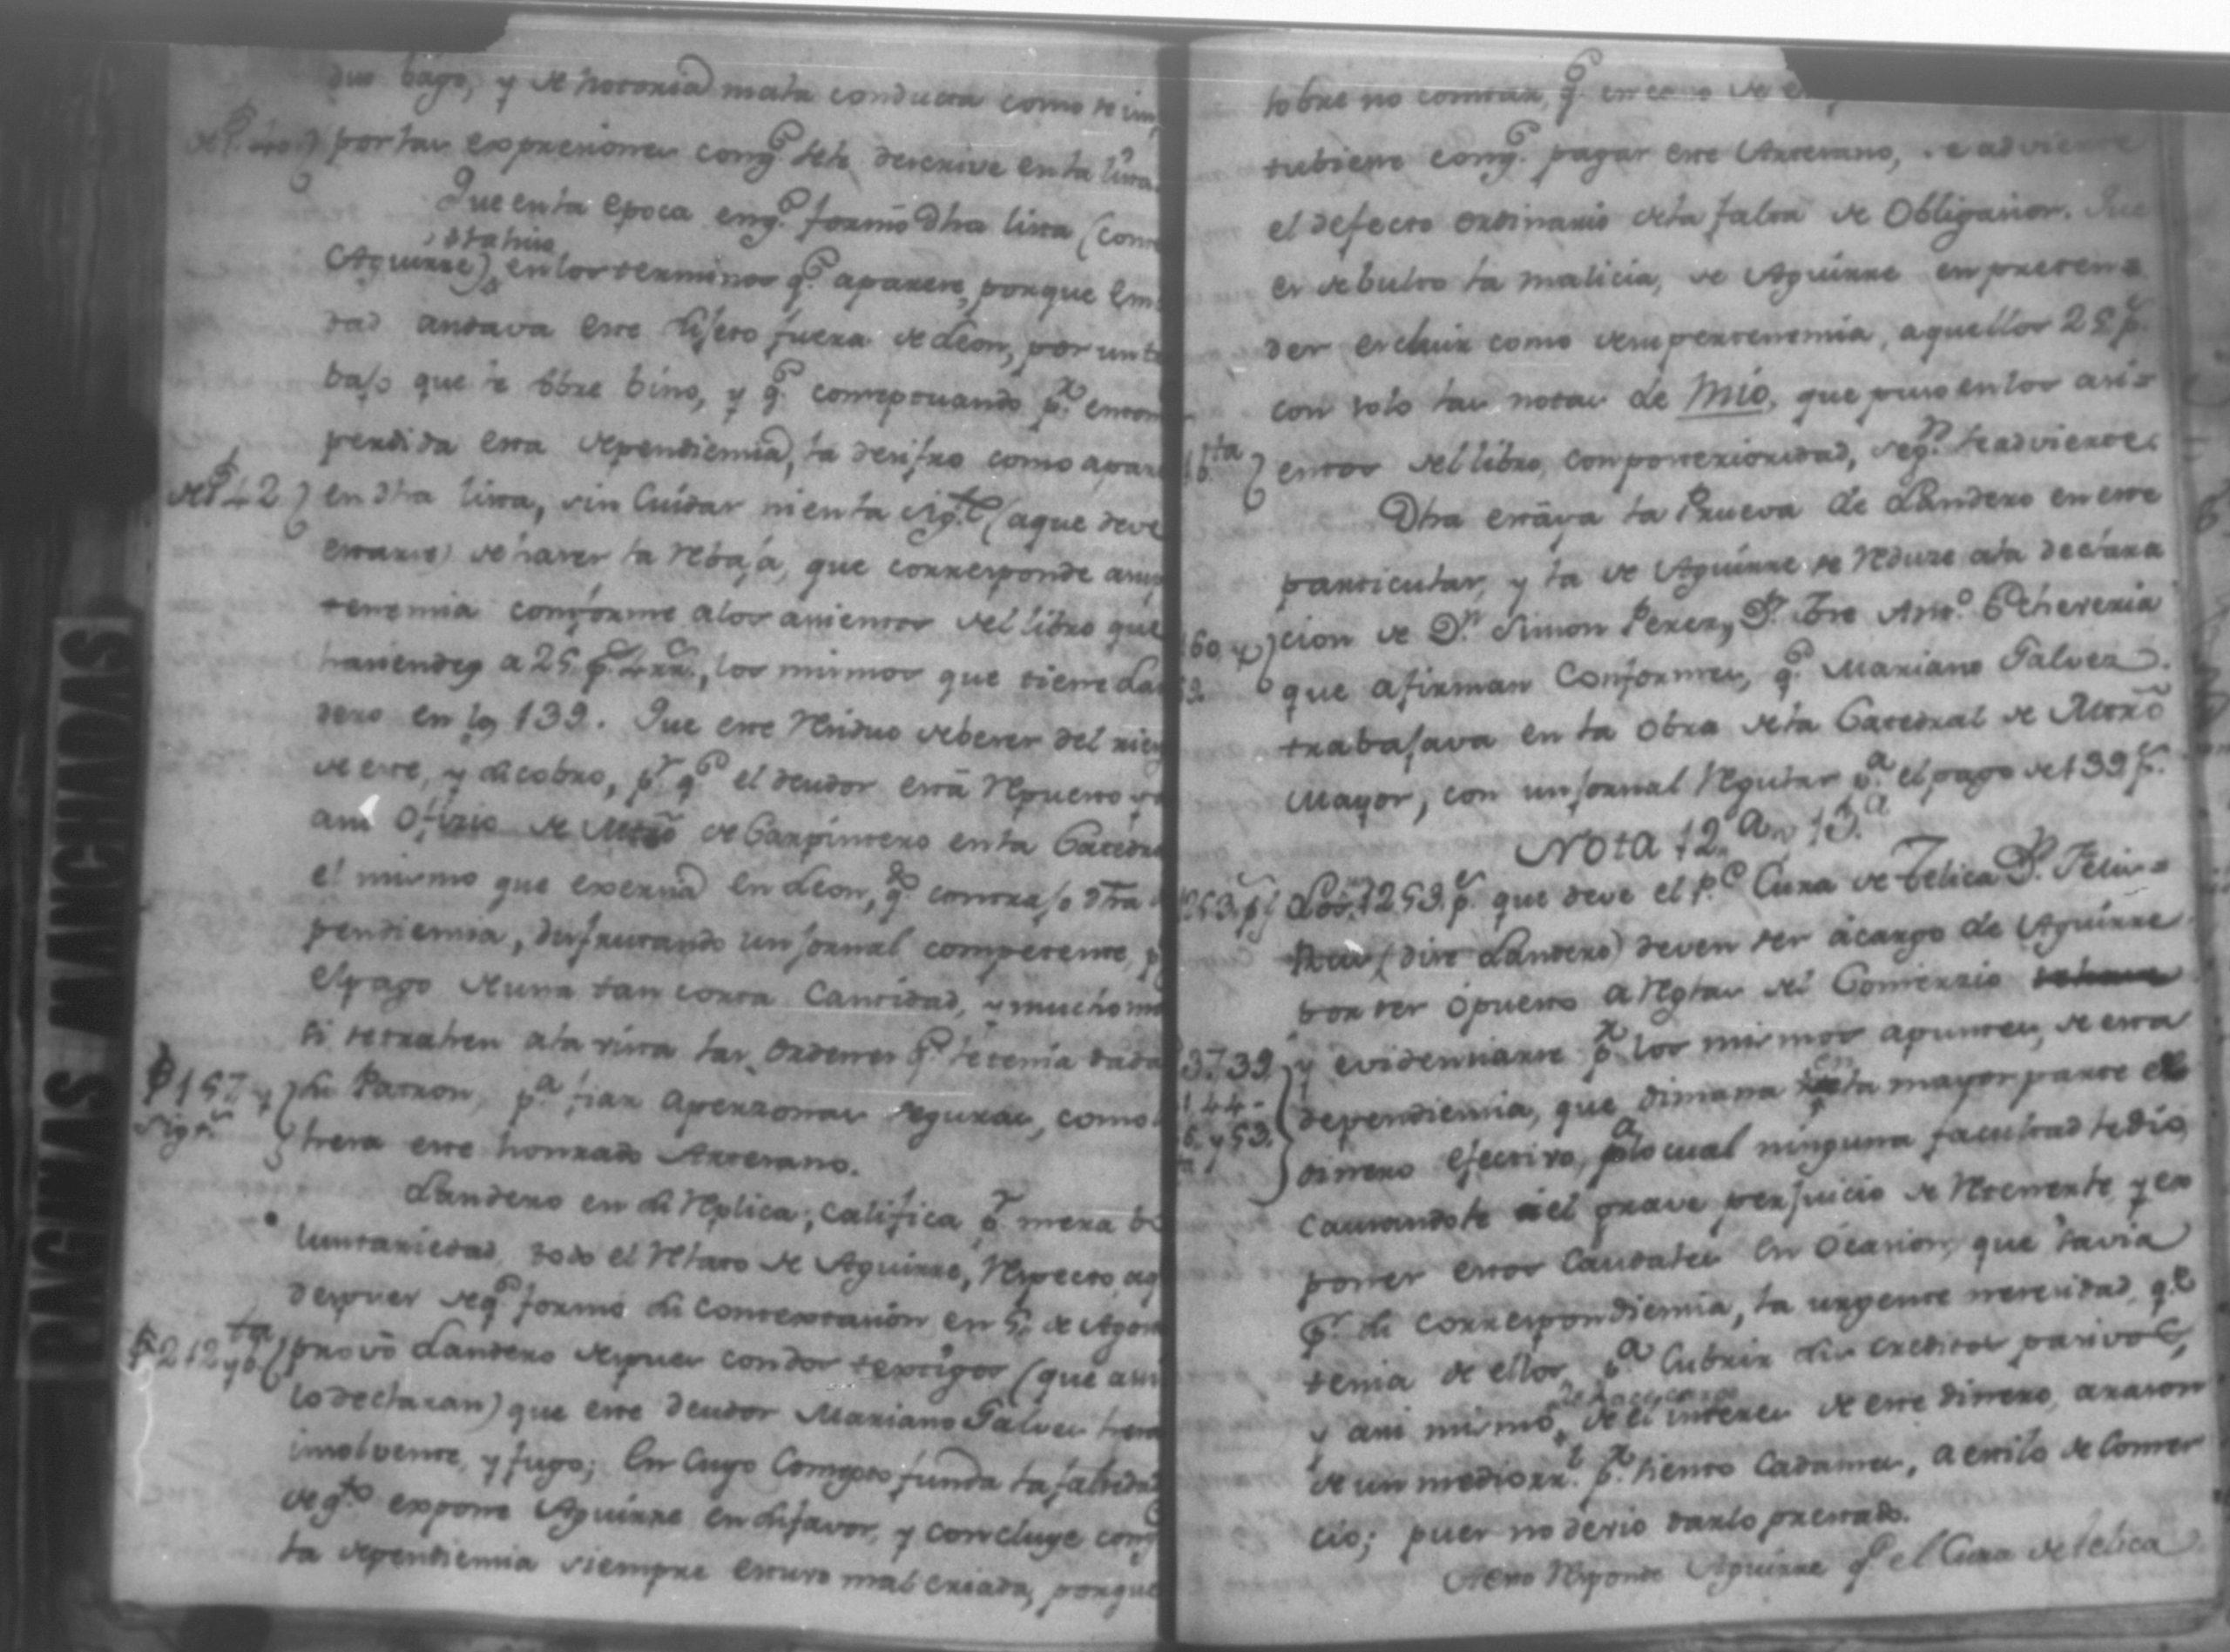 duo bago, y de notoria mala conducta como se im
por las expresiones conq.e se le descrive en la lista.
Que en la epoca enq.e formó dha lista (con
Aguirre), en los terminos q.e aparese, porque
dad andava este sujeto fuera de Leon, por un
bajo que le sobre bino, y q.e conseptuando p.r
perdida esta dependiencia, la designo como apare
de f 42) en dha lista, sin Cuidar ni en la sig.te (aque deve
estarse) de haser la Rebaja, que corresponde a su
tenencia conforme alos asientos del libro que
hasiendeg a 25 p.s 4 rr.s, los mismos que tiene Lan
dero en los 139. Que este Residuo deberes del
de este, y su cobro, p.r q.e el deudor está Repuesto
asu Ofizio de Mtrõ de Carpintero en la Catedral
el mismo que exersia en Leon, q.do contrajo dha
pendiencia, disfrutando un jornal competente, p
el pago de una tan corta Cantidad, y mucho mas
si se trahen ala vista las ordenes q.e le tenia dada
f 157 y
sig.te
su Patron, p.a fiar apersonas seguras, como
hera este honrado Artesano.
Landero en su Replica; califica p.r mera bo
luntariedad, todo el Relato de Aguirre, Respecto aq
despues deq.e formó su contextasión en 5, de Agosto
f 212 y b.ta) provó Landero despues con dos testigos (que asi
lo declaran) que este deudor Mariano Galves hera
insolvente, y fugo; En Cuyo Consepto funda la falsedad
de q.to expone Aguirre en su favor, y concluye con q
la dependiencia siempre estuvo mal criada, porque
sobre no constar, q.e en caso de
tubiese conq.e pagar este Artesano, se advierte
el defecto ordinario dela falta de Obligasion. Que
es de bulto la malicia, de Aguirre en preten=
der escluir como de su pertenencia, aquellos 25 p.s
con solo las notas de Mio, que puso en los asi=
entos del libro, con posterioridad, seg.n se advierte.
Dha estáya la Prueva de Landero en este
particular, y la de Aguirre se Reduse ala declara
160 y) cion de D.n Simon Perez, y D.n Jose Ant.o Echeverria
que afirman Conformes, q.e Mariano Galvez
trabajava en la obra dela Catedral de Mtrõ
Mayor, con un jornal Regular p.a el pago de 139 p.s
Nota 12.a a 13.a
1253 p.s) Los 1253. p.s que deve el P.e Cura de Telica D.n Felis=
(dise Landero) deven ser ácargo de Aguirre
por ser ópuesto a Reglas del Comersio
37.39) y evidensiarse p.r los mismos apuntes, de esta
144.
y 53.
dependiencia, que dimana en la mayor parte de
dinero efectivo, p.a lo cual ninguna facultad se dio,
causandole aél grave perjuicio de Retenerle, y ex
poner estos Caudales en Ócasion, que savia
p.r su correspondiencia, la urgente nesesidad q.e
tenia de ellos, p.a Cubrir sus creditos pasivos,
y asi mismo, de el interes de este dinero, arason
de un medio rr.l p.r siento Cadames, a estilo de Comer
cio; pues no devio darlo prestado.
Aesto Responde Aguirre q.e el Cura de Telica
PAGINAS MANCHADAS